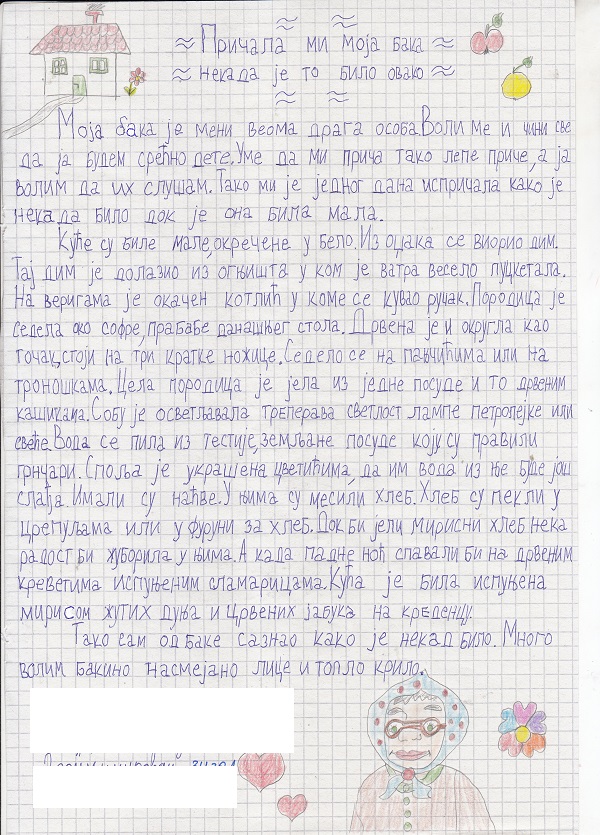 Причала ми моја бака
некада је то било овако
Моја бака је мени веома драга особа. Воли ме и чини све
да ја будем срећно дете. Уме да ми прича тако лепе приче, а ја
волим да их слушам. Тако ми је једног дана испричала како је
некада било док је она била мала.
Куће су биле мале, окречене у бело. Из оџака се виорио дим.
Тај дим је долазио из огњишта у ком је ватра весело пуцкетала.
На веригама је окачен котлић у коме се кувао ручак. Породица је
седела око софре, прабабе данашњег стола. Дрвена је и округла као
точак, стоји на три кратке ножице. Седело се на пањчићима или на
троношкама. Цела породица је јела из једне посуде и то дрвеним
кашикама. Собу је осветљавала треперава светлост лампе петропејке или
свеће. Вода се пила из тестије, земљане посуде коју су правили
грнчари. Споља је украшена цветићима, да им вода из ње буде још
слађа. Имали су наћве. У њима су месили хлеб. Хлеб су пекли у
црепуљама или у фуруни за хлеб. Док би јели мирисни хлеб нека
радост би жуборила у њима. А када падне ноћ спавали би на дрвеним
креветима испуњеним сламарицама. Кућа је била испуњена
мирисом жутих дуња и црвених јабука на креденцу.
Тако сам од баке сазнао како је некад било. Много
волим бакино насмејано лице и топло крило.